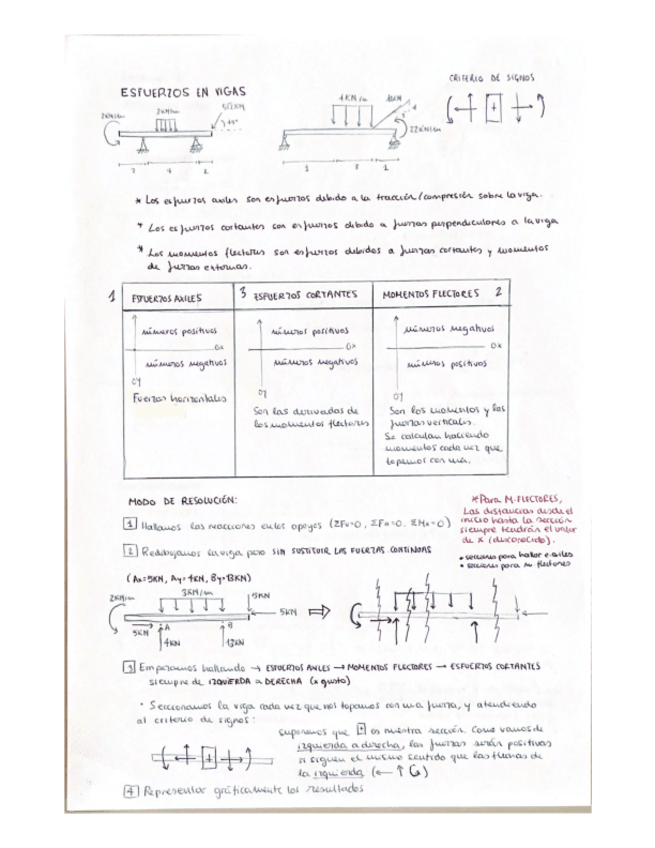 CRITERIO DE SIGNOS
ESFUERZOS EN VIGAS
* Los esfuerzos axiles son esfuerzos debido a la tracción/compresión sobre la viga.
* Los esfuerzos cortantes son esfuerzos debido a fuerzas perpendiculares a la viga
* Los momentos flectores son esfuerzos debidos a fuerzas cortantes y momentos
de fuerzas externas.
1 ESFUERZOS AXILES
3 ESFUERZOS CORTANTES
MOMENTOS FLECTORES 2
números positivos
números positivos
números negativos
números negativos
números negativos
números positivos
Fuerzas horizontales
Son las derivadas de
los momentos flectores
Son los momentos y las
fuerzas verticales.
Se calculan haciendo
momentos cada vez que
topemos con una.
MODO DE RESOLUCIÓN:
*Para M. FLECTORES,
Las distancias desde el
inicio hasta la sección
siempre tendrán el valor
de X (desconocido).
1 Hallamos las reacciones en los apoyos
2 Redibujamos la viga pero SIN SUSTITUIR LAS FUERZAS CONTINUAS
• secciones para hallar e. axiles
• secciones para m. flectores
(Ax=5KN, Ay=4KN, By=13KN)
3KN/m
5KN
5KN
A
B
4KN
3 Empezamos hallando → ESFUERZOS AXILES → MOMENTOS FLECTORES → ESFUERZOS CORTANTES
siempre de IZQUIERDA a DERECHA (x gusto)
• Seccionamos la viga cada vez que nos topamos con una fuerza, y atendiendo
al criterio de signos:
suponemos que es nuestra sección. Como vamos de
izquierda a derecha, las fuerzas serán positivas
si siguen el mismo sentido que las flechas de
la izquierda
4 Representar gráficamente los resultados